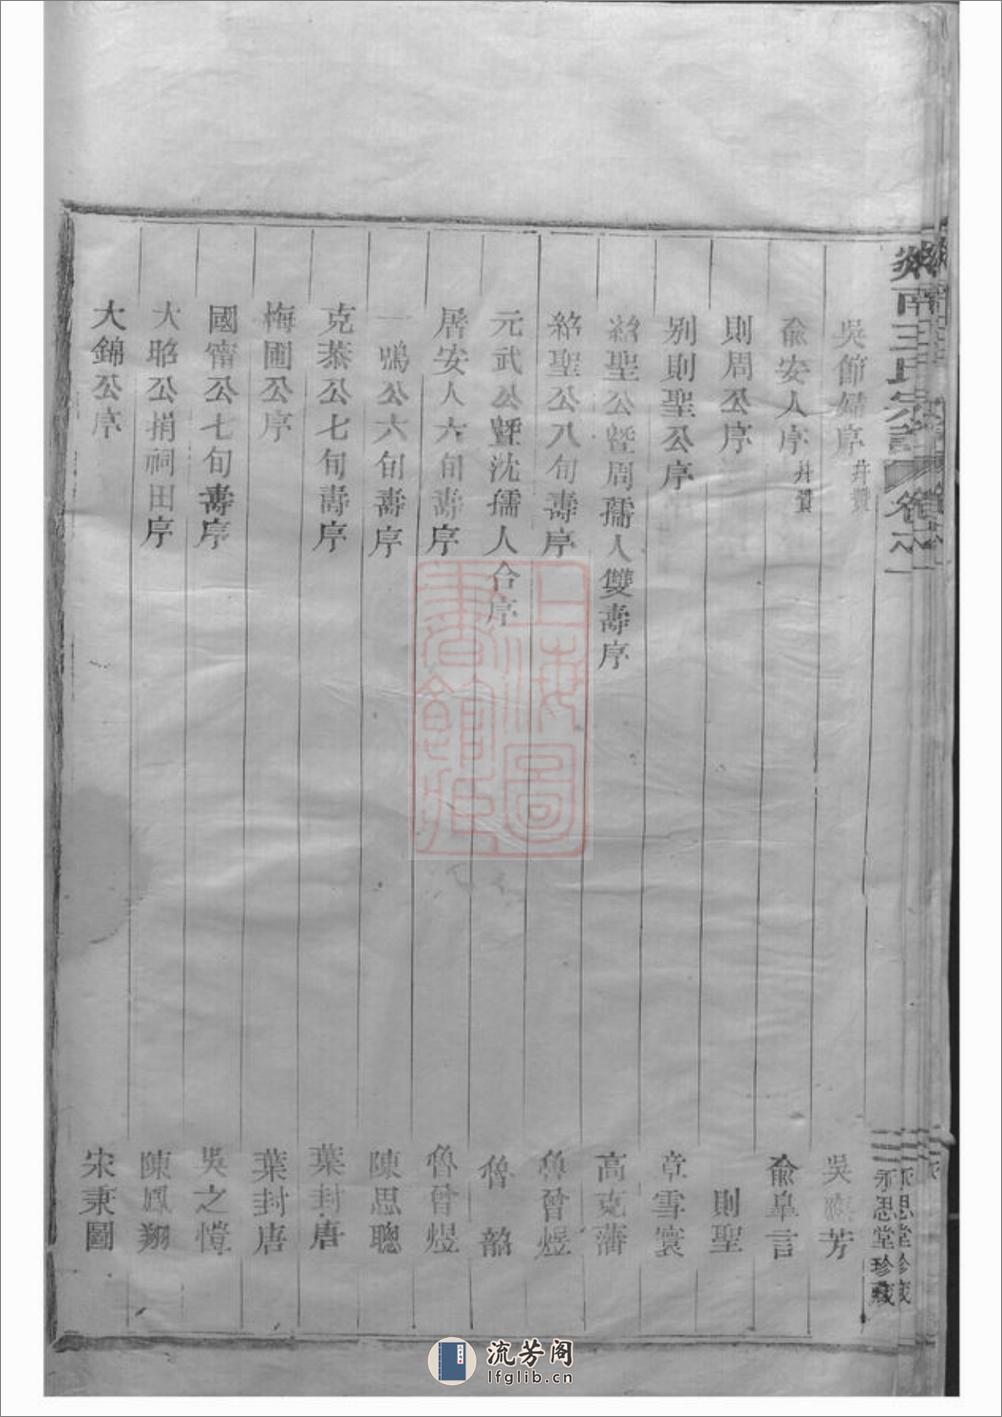 南王氏宗譜 卷六
二 永思堂珍藏
吳節婦序 幷贊 吳 芳
俞安人序 幷贊 俞皐言
則周公序 則聖
别則聖公序 章雪寰
紹聖公曁周孺人雙壽序 高克藩
紹聖公八旬壽序 魯晉煜
元武公曁沈孺人合序 魯 韶
屠安人六旬壽序 魯晉煜
一鶚公六旬壽序 陳思聰
克恭公七旬壽序 葉封唐
梅圃公序 葉封唐
國甯公七旬壽序 吳之愷
大昭公捐祠田序 陳鳳翔
大錦公序 宋秉圖
上海圖書館藏
流芳阁
lfglib.cn